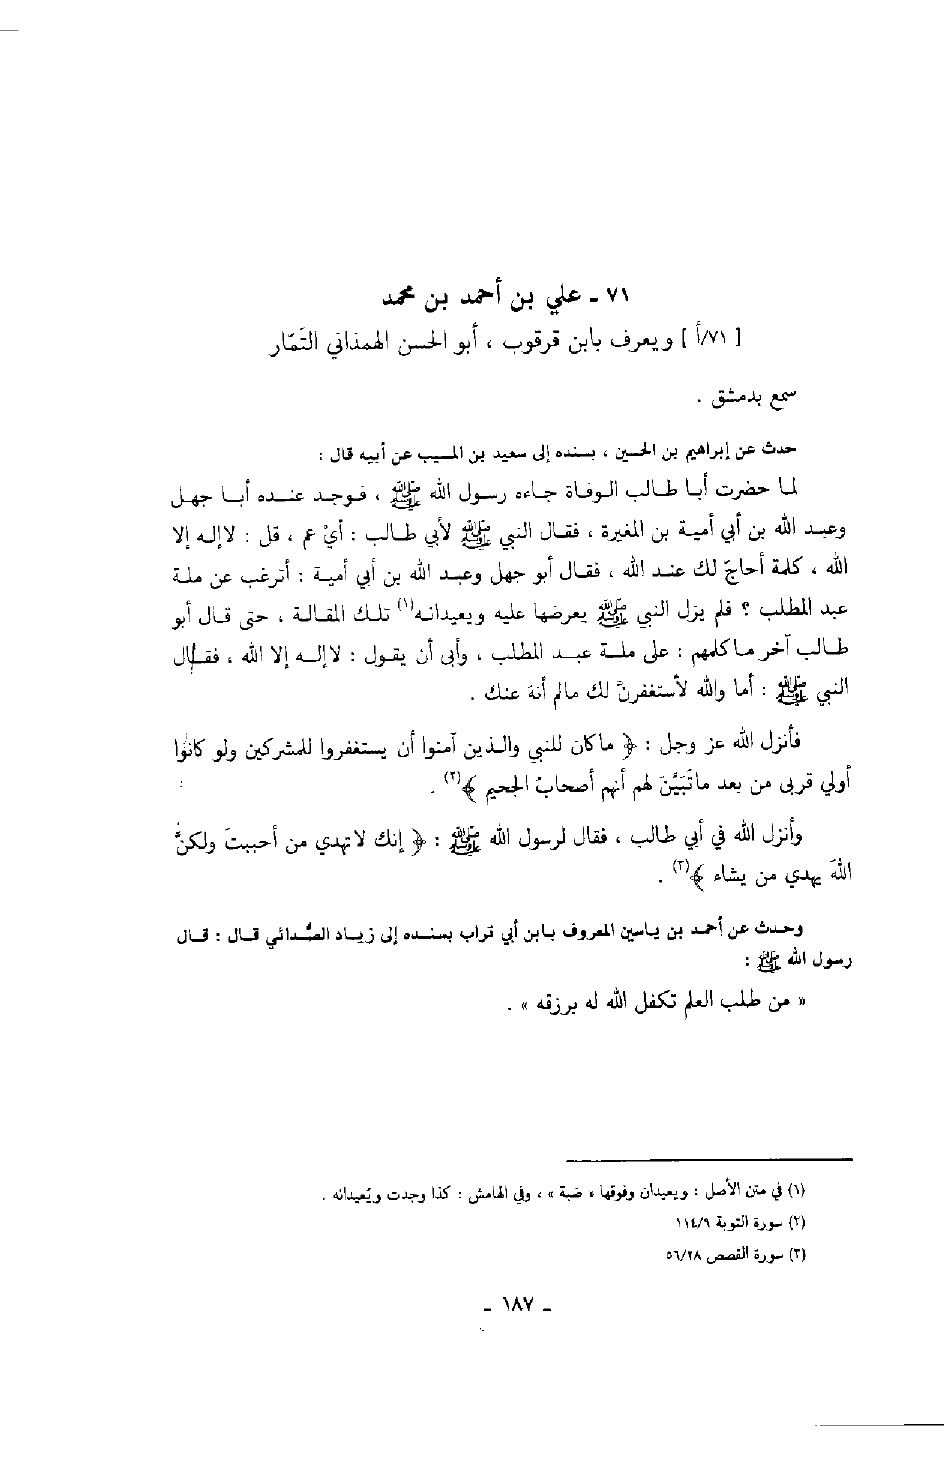 ٧١ ـ علي بن أحمد بن محمد
[ ٧١/أ ] ويعرف بابن قرقوب ، أبو الحسن الهمذاني التَمّار
سمع بدمشق .
حدث عن إبراهيم بن الحسين ، بسنده إلى سعيد بن المسيب عن أبيه قال :
لما حضرت أبا طالب الوفاة جاءه رسول الله ﷺ ، فوجد عنده أبا جهل
وعبد الله بن أبي أمية بن المغيرة ، فقال النبي ﷺ لأبي طالب : أيْ عم ، قل : لا إله إلا
الله ، كلمة أحاجّ لك عند الله ، فقال أبو جهل وعبد الله بن أبي أمية : أترغب عن ملة
عبد المطلب ؟ فلم يزل النبي ﷺ يعرضها عليه ويعيدانه(١) تلك المقالة ، حتى قال أبو
طالب آخر ما كلمهم : على ملة عبد المطلب ، وأبى أن يقول : لا إله إلا الله ، فقال
النبي ﷺ : أما والله لأستغفرنَّ لك مالم أنهَ عنك .
فأنزل الله عز وجل : ﴿ ما كان للنبي والذين آمنوا أن يستغفروا للمشركين ولو كانُوا
أولي قربى من بعد ما تَبَيَّنَ لهم أنهم أصحابُ الجحيم ﴾(٢) .
وأنزل الله في أبي طالب ، فقال لرسول الله ﷺ : ﴿ إنك لا تهدي من أحببتَ ولكنَّ
اللهَ يهدي من يشاء ﴾(٣) .
وحدث عن أحمد بن ياسين المعروف بابن أبي تراب بسنده إلى زياد الصُّدائي قال : قال
رسول الله ﷺ :
« من طلب العلم تكفل الله له برزقه » .
(١) في متن الأصل : ويعيدان وفوقها « ضبة » ، وفي الهامش : كذا وجدت ويُعيدانه .
(٢) سورة التوبة ١١٤/٩
(٣) سورة القصص ٥٦/٢٨
ـ ١٨٧ ـ